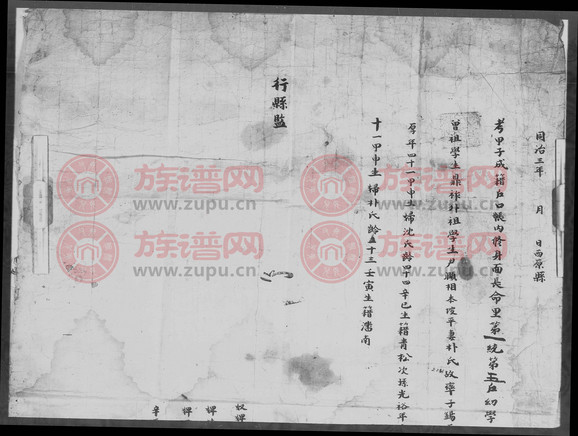 同治三年 月 日西原縣
考甲子成籍戶口帳內修身面長命里第一統第五戶幼學
曾祖學生 祖學生尹 相本坡平妻朴氏故率子錫
年四十一甲申生婦沈氏齡四十四辛巳生籍青松次孫光裕年
十一甲申生婦朴氏齡五十三壬寅生籍潘南
行縣監
奴婢
婢
婢
族谱网
www.zupu.cn
族谱网
www.zupu.cn
族谱网
www.zupu.cn
族谱网
www.zupu.cn